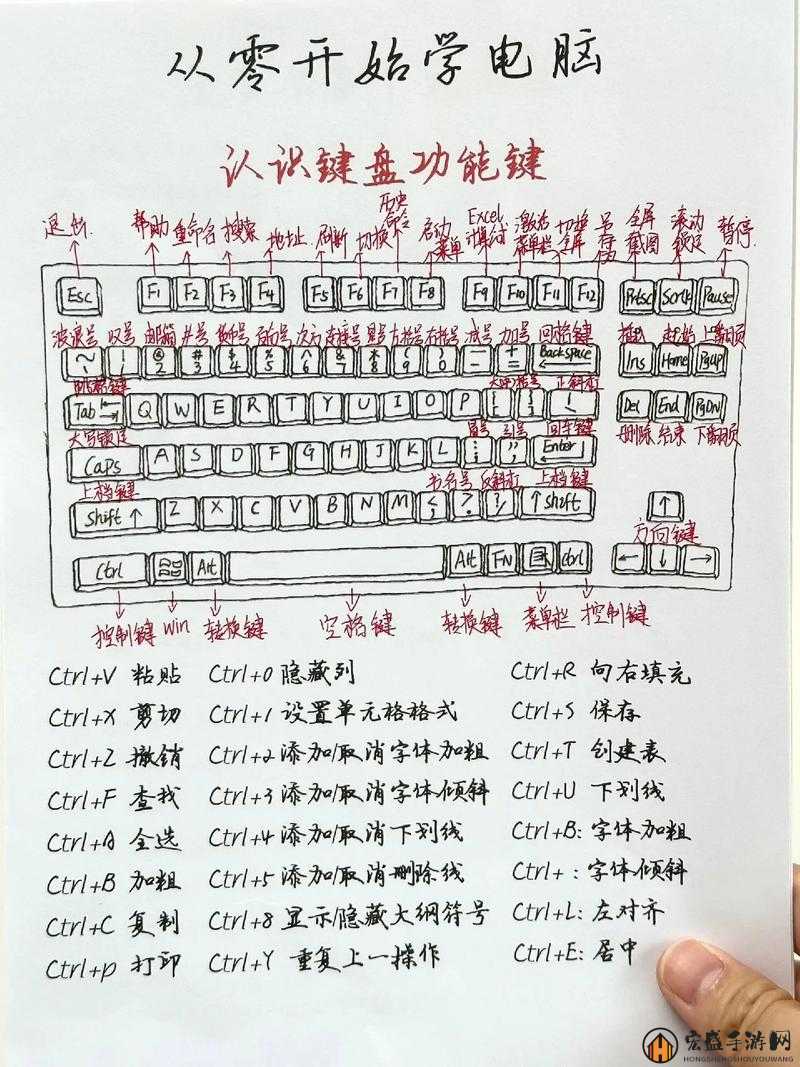 从零开始学电脑
认识键盘功能键
退出 帮助 重命名 搜索 地址 刷新 切换 历史命令 启动菜单 Excel计算公式 激活菜单栏 切换全屏 另存为 全屏截图 滚动锁定 暂停
Esc F1 F2 F3 F4 F5 F6 F7 F8 F9 F10 F11 F12 Prtsc Scrlk Pause
波浪号 叹号 邮箱 井号 货币号 百分号 次方 连接号 星号 左括号 右括号 减号 加号 回格键 插入 起始 上翻页
~ ` ! 1 @ 2 # 3 $ 4 % 5 ^ 6 & 7 * 8 ( 9 ) 0 — - + = Backspace Ins Home PgUp
大中括号 正斜杠
Tab Q W E R T Y U I O P Del End PgDn
大写锁定 冒号 引号 回车键 删除 结束 下翻页
Caps A S D F G H J K L Enter
上档键 书名号 反斜杠 上档键
Shift ↑ Z X C V B N M ↑ Shift ↑
方向键
Ctrl Alt Alt FN Ctrl ← ↓ →
控制键 Win 转换键 空格键 转换键 菜单栏 控制键
Ctrl+V 粘贴 Ctrl+0 隐藏列 Ctrl+R 向右填充
Ctrl+X 剪切 Ctrl+1 设置单元格格式 Ctrl+S 保存
Ctrl+Z 撤销 Ctrl+2 添加/取消字体加粗 Ctrl+T 创建表
Ctrl+F 查找 Ctrl+3 添加/取消字体倾斜 Ctrl+U 下划线
Ctrl+A 全选 Ctrl+4 添加/取消下划线 Ctrl+B: 字体加粗
Ctrl+B 加粗 Ctrl+5 添加/取消删除线 Ctrl+ : 字体倾斜
Ctrl+C 复制 Ctrl+8 显示/隐藏大纲符号 Ctrl+L: 左对齐
Ctrl+p 打印 Ctrl+Y 重复上一操作 Ctrl+E: 居中
宏盛手游网
HONGSHENGSHOUYOUWANG